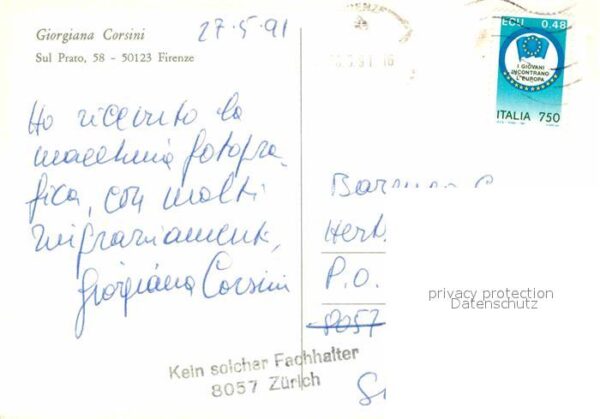 Giorgiana Corsini
Sul Prato, 58 - 50123 Firenze
27-5-91
Ho ricevuto la
macchina fotogra-
fica, con molti
ringraziamenti,
Giorgiana Corsini
ECU 0.48
I GIOVANI
INCONTRANO
L'EUROPA
ITALIA 750
P.O.
8057
privacy protection
Datenschutz
Kein solcher Fachhalter
8057 Zürich